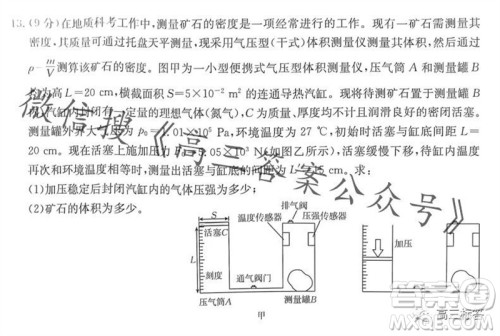 13.(9分)在地质科考工作中,测量矿石的密度是一项经常进行的工作。现有一矿石需测量其
密度,其质量可通过托盘天平测量,现采用气压型(干式)体积测量仪测量其体积,然后通过
ρ=m/V测算该矿石的密度。图甲为一小型便携式气压型体积测量仪,压气筒A和测量罐B
均为高L=20 cm,横截面积S=5×10⁻² m²的连通导热汽缸。现将待测矿石置于测量罐B
中,汽缸内封闭一定量的理想气体(氮气),C为质量、厚度均不计且润滑良好的密闭活塞。
测量罐外界大气压为p₀=1.01×10⁵ Pa,环境温度为27 ℃,初始时活塞与缸底间距L=
20 cm。现在活塞上施加压力 .05×10³ N(如图乙所示),活塞缓慢下移,待缸内气压再
次稳定时(环境温度不变),测量出活塞与缸底的间距为 15 cm。求:
(1)加压稳定后封闭汽缸内的气体压强为多少;
(2)矿石的体积为多少。
排气阀
S 温度传感器 压强传感器
活塞C
L
刻度 通气阀门
压气筒A 测量罐B
甲
加压
微信搜《高三答案公众号》